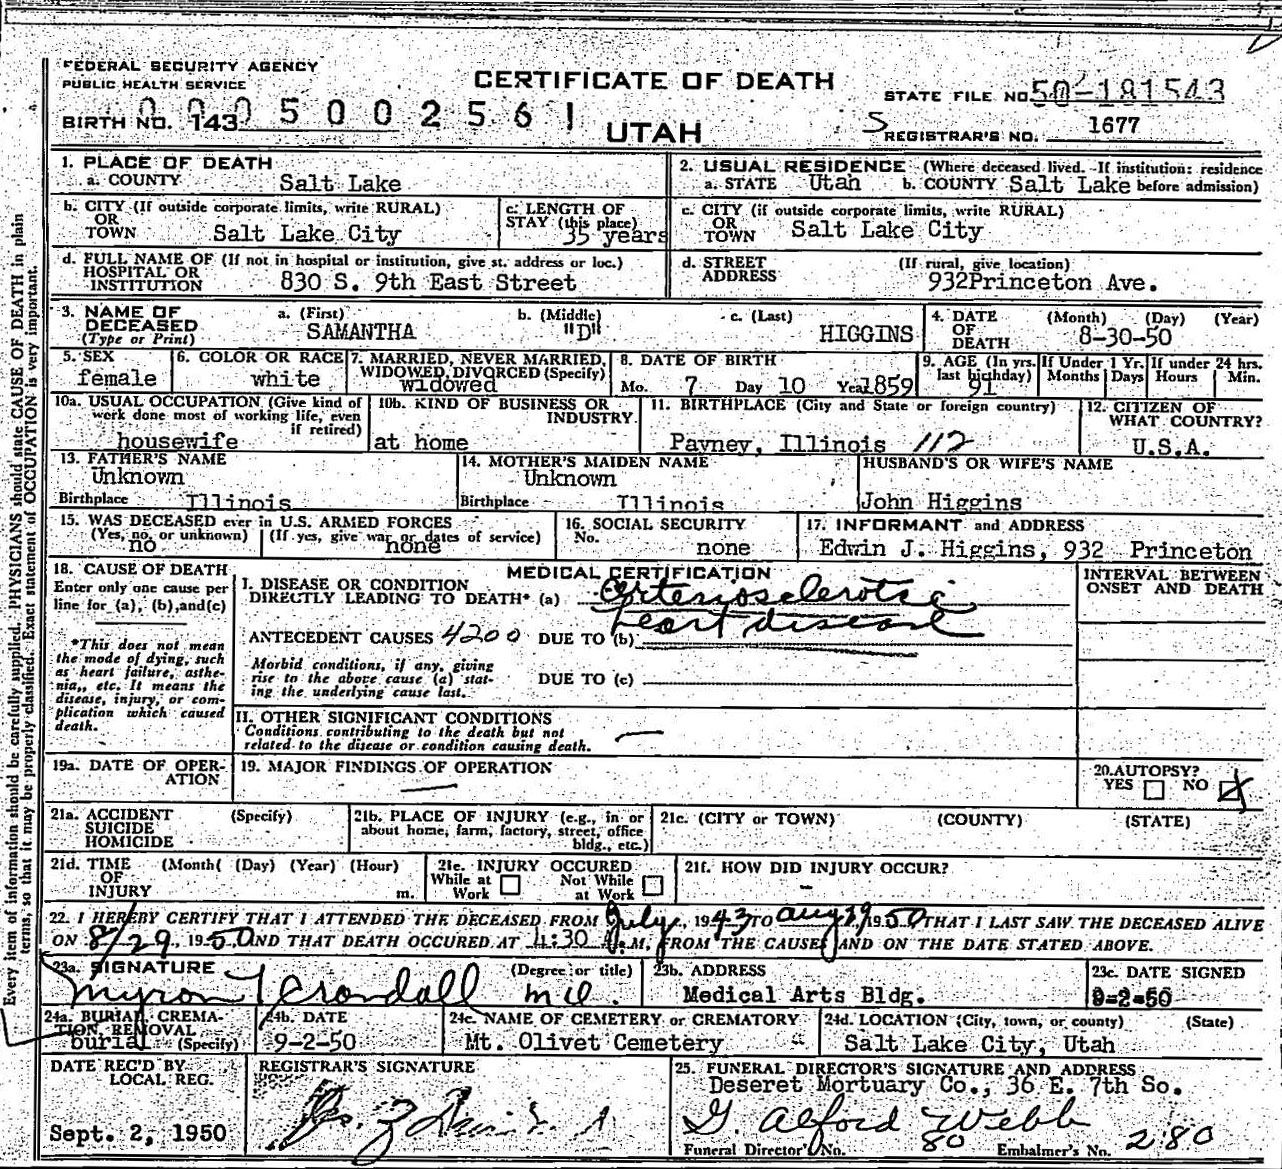 FEDERAL SECURITY AGENCY
PUBLIC HEALTH SERVICE
CERTIFICATE OF DEATH
STATE FILE NO. 50-181543
BIRTH NO. 143 0005002561
UTAH
REGISTRAR'S NO. 1677
1. PLACE OF DEATH
a. COUNTY Salt Lake
2. USUAL RESIDENCE (Where deceased lived. If institution: residence before admission)
a. STATE Utah b. COUNTY Salt Lake
b. CITY (If outside corporate limits, write RURAL) OR TOWN Salt Lake City
c. LENGTH OF STAY (this place) 35 years
c. CITY (if outside corporate limits, write RURAL) OR TOWN Salt Lake City
d. FULL NAME OF (If not in hospital or institution, give st. address or loc.) HOSPITAL OR INSTITUTION 830 S. 9th East Street
d. STREET ADDRESS (If rural, give location) 932Princeton Ave.
3. NAME OF DECEASED (Type or Print)
a. (First) SAMANTHA b. (Middle) "D" c. (Last) HIGGINS
4. DATE OF DEATH (Month) (Day) (Year) 8-30-50
5. SEX female
6. COLOR OR RACE white
7. MARRIED, NEVER MARRIED, WIDOWED, DIVORCED (Specify) widowed
8. DATE OF BIRTH Mo. 7 Day 10 Year 1859
9. AGE (In yrs. last birthday) 91
If Under 1 Yr. Months Days
If under 24 hrs. Hours Min.
10a. USUAL OCCUPATION (Give kind of work done most of working life, even if retired) housewife
10b. KIND OF BUSINESS OR INDUSTRY at home
11. BIRTHPLACE (City and State or foreign country) Payney, Illinois 112
12. CITIZEN OF WHAT COUNTRY? U.S.A.
13. FATHER'S NAME Unknown
Birthplace Illinois
14. MOTHER'S MAIDEN NAME Unknown
Birthplace Illinois
HUSBAND'S OR WIFE'S NAME John Higgins
15. WAS DECEASED ever in U.S. ARMED FORCES
(Yes, no, or unknown) no (If yes, give war or dates of service) none
16. SOCIAL SECURITY No. none
17. INFORMANT and ADDRESS Edwin J. Higgins, 932 Princeton
18. CAUSE OF DEATH
Enter only one cause per line for (a), (b), and (c)
*This does not mean the mode of dying, such as heart failure, asthenia, etc. It means the disease, injury, or complication which caused death.
MEDICAL CERTIFICATION
INTERVAL BETWEEN ONSET AND DEATH
I. DISEASE OR CONDITION DIRECTLY LEADING TO DEATH* (a) Arteriosclerotic
heart disease
ANTECEDENT CAUSES 4200 DUE TO (b)
Morbid conditions, if any, giving rise to the above cause (a) stating the underlying cause last.
DUE TO (c)
II. OTHER SIGNIFICANT CONDITIONS
Conditions contributing to the death but not related to the disease or condition causing death.
19a. DATE OF OPERATION
19. MAJOR FINDINGS OF OPERATION
20. AUTOPSY? YES NO X
21a. ACCIDENT SUICIDE HOMICIDE (Specify)
21b. PLACE OF INJURY (e.g., in or about home, farm, factory, street, office bldg., etc.)
21c. (CITY or TOWN) (COUNTY) (STATE)
21d. TIME OF INJURY (Month) (Day) (Year) (Hour) m.
21e. INJURY OCCURED While at Work Not While at Work
21f. HOW DID INJURY OCCUR?
22. I HEREBY CERTIFY THAT I ATTENDED THE DECEASED FROM July, 1943 TO Aug 29 1950 THAT I LAST SAW THE DECEASED ALIVE
ON 8/29, 1950 AND THAT DEATH OCCURED AT 4:30 A.M, FROM THE CAUSES AND ON THE DATE STATED ABOVE.
23a. SIGNATURE (Degree or title) Myron L Crandall M.D.
23b. ADDRESS Medical Arts Bldg.
23c. DATE SIGNED 9-2-50
24a. BURIAL, CREMATION, REMOVAL (Specify) burial
24b. DATE 9-2-50
24c. NAME OF CEMETERY or CREMATORY Mt. Olivet Cemetery
24d. LOCATION (City, town, or county) (State) Salt Lake City, Utah
DATE REC'D BY LOCAL REG. Sept. 2, 1950
REGISTRAR'S SIGNATURE
25. FUNERAL DIRECTOR'S SIGNATURE AND ADDRESS
Deseret Mortuary Co., 36 E. 7th So.
G. Alford Webb
Funeral Director's No. 80 Embalmer's No. 280
Every item of information should be carefully supplied. PHYSICIANS should state CAUSE OF DEATH in plain
terms, so that it may be properly classified. Exact statement of OCCUPATION is very important.